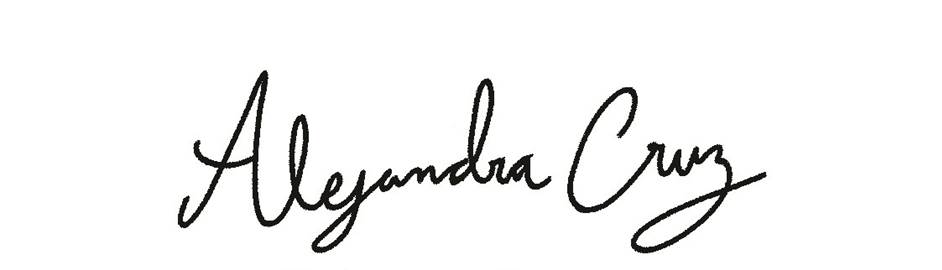 Alejandra Cruz